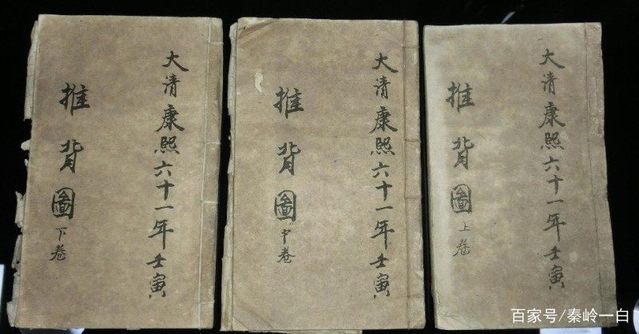 大清康熙六十一年壬寅
推背圖上卷
大清康熙六十一年壬寅
推背圖中卷
大清康熙六十一年壬寅
推背圖下卷
百家号/秦岭一白